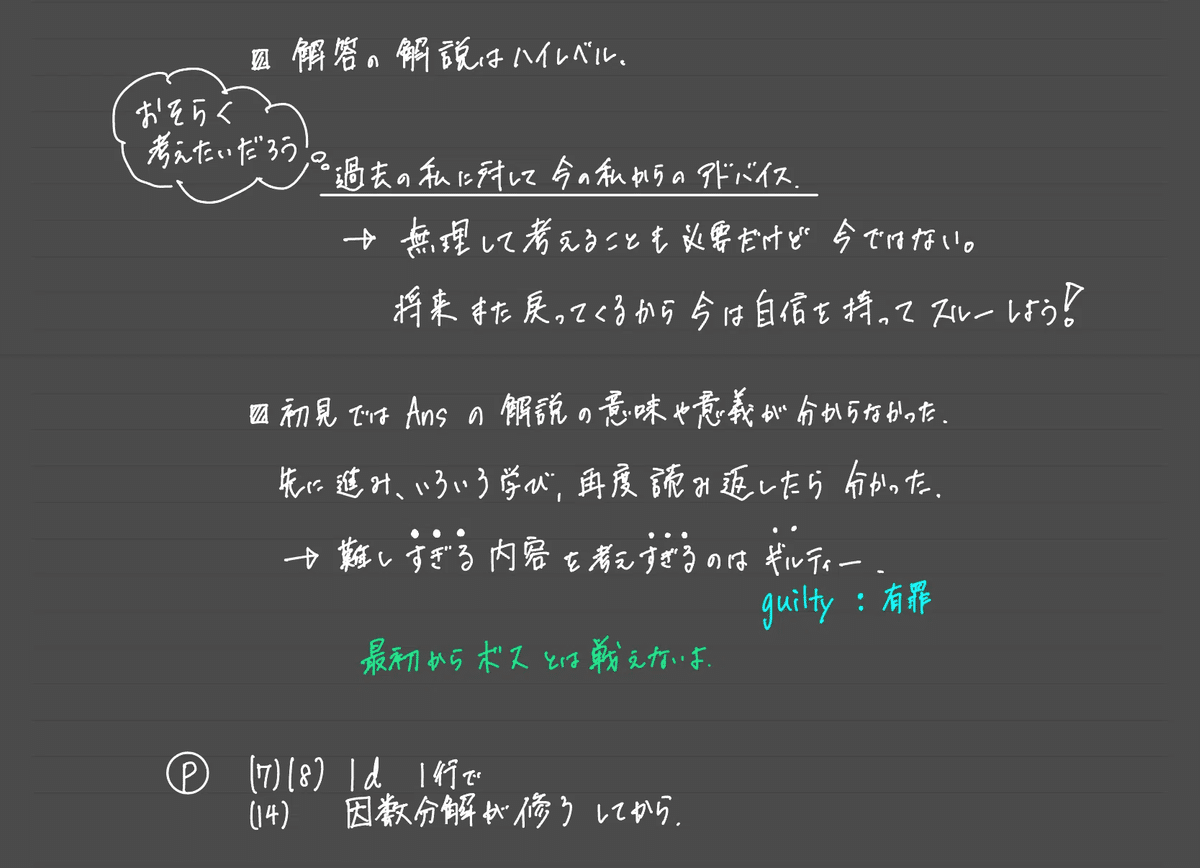 解答の解説はハイレベル.
おそらく
考えたいだろう
過去の私に対して今の私からのアドバイス.
→ 無理して考えることも必要だけど 今ではない。
将来また戻ってくるから今は自信を持ってスルーしよう!
初見では Ans の解説の意味や意義が分からなかった.
先に進み、いろいろ学び, 再度読み返したら分かった.
→ 難しすぎる内容を考えすぎるのはギルティー.
guilty : 有罪
最初からボスとは戦えないよ.
P (7)(8) 1d 1行で
(14) 因数分解が修うしてから.